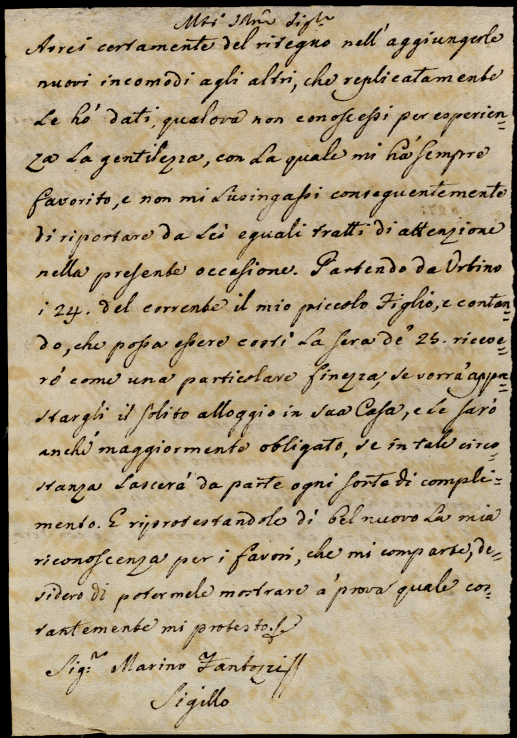 Avrei certamente del ritegno nell' aggiungerle
nuovi incomodi agli altri, che replicatamente
Le hò dati, qualora non conoscessi per esperien=
za La gentilezza, con La quale mi hà sempre
favorito, e non mi Lusingassi conseguentemente
di riportare da Lei eguali tratti di attenzione
nella presente occasione. Partendo da Urbino
i 24. del corrente il mio piccolo Figlio, e contan=
do, che possa essere costì La sera de' 25. riceve=
rò come una particolare finezza, se vorrà appre=
stargli il solito alloggio in sua Casa, e Le sarò
anche maggiormente obligato, se in tale circo=
stanza Lascerà da parte ogni sorte di compli=
mento. E riprotestandole di bel nuovo La mia
riconoscenza per i favori, che mi comparte, de=
sidero di potermele mostrare à prova quale cos=
tantemente mi protesto
Sig.r Marino Fantozzi
Sigillo